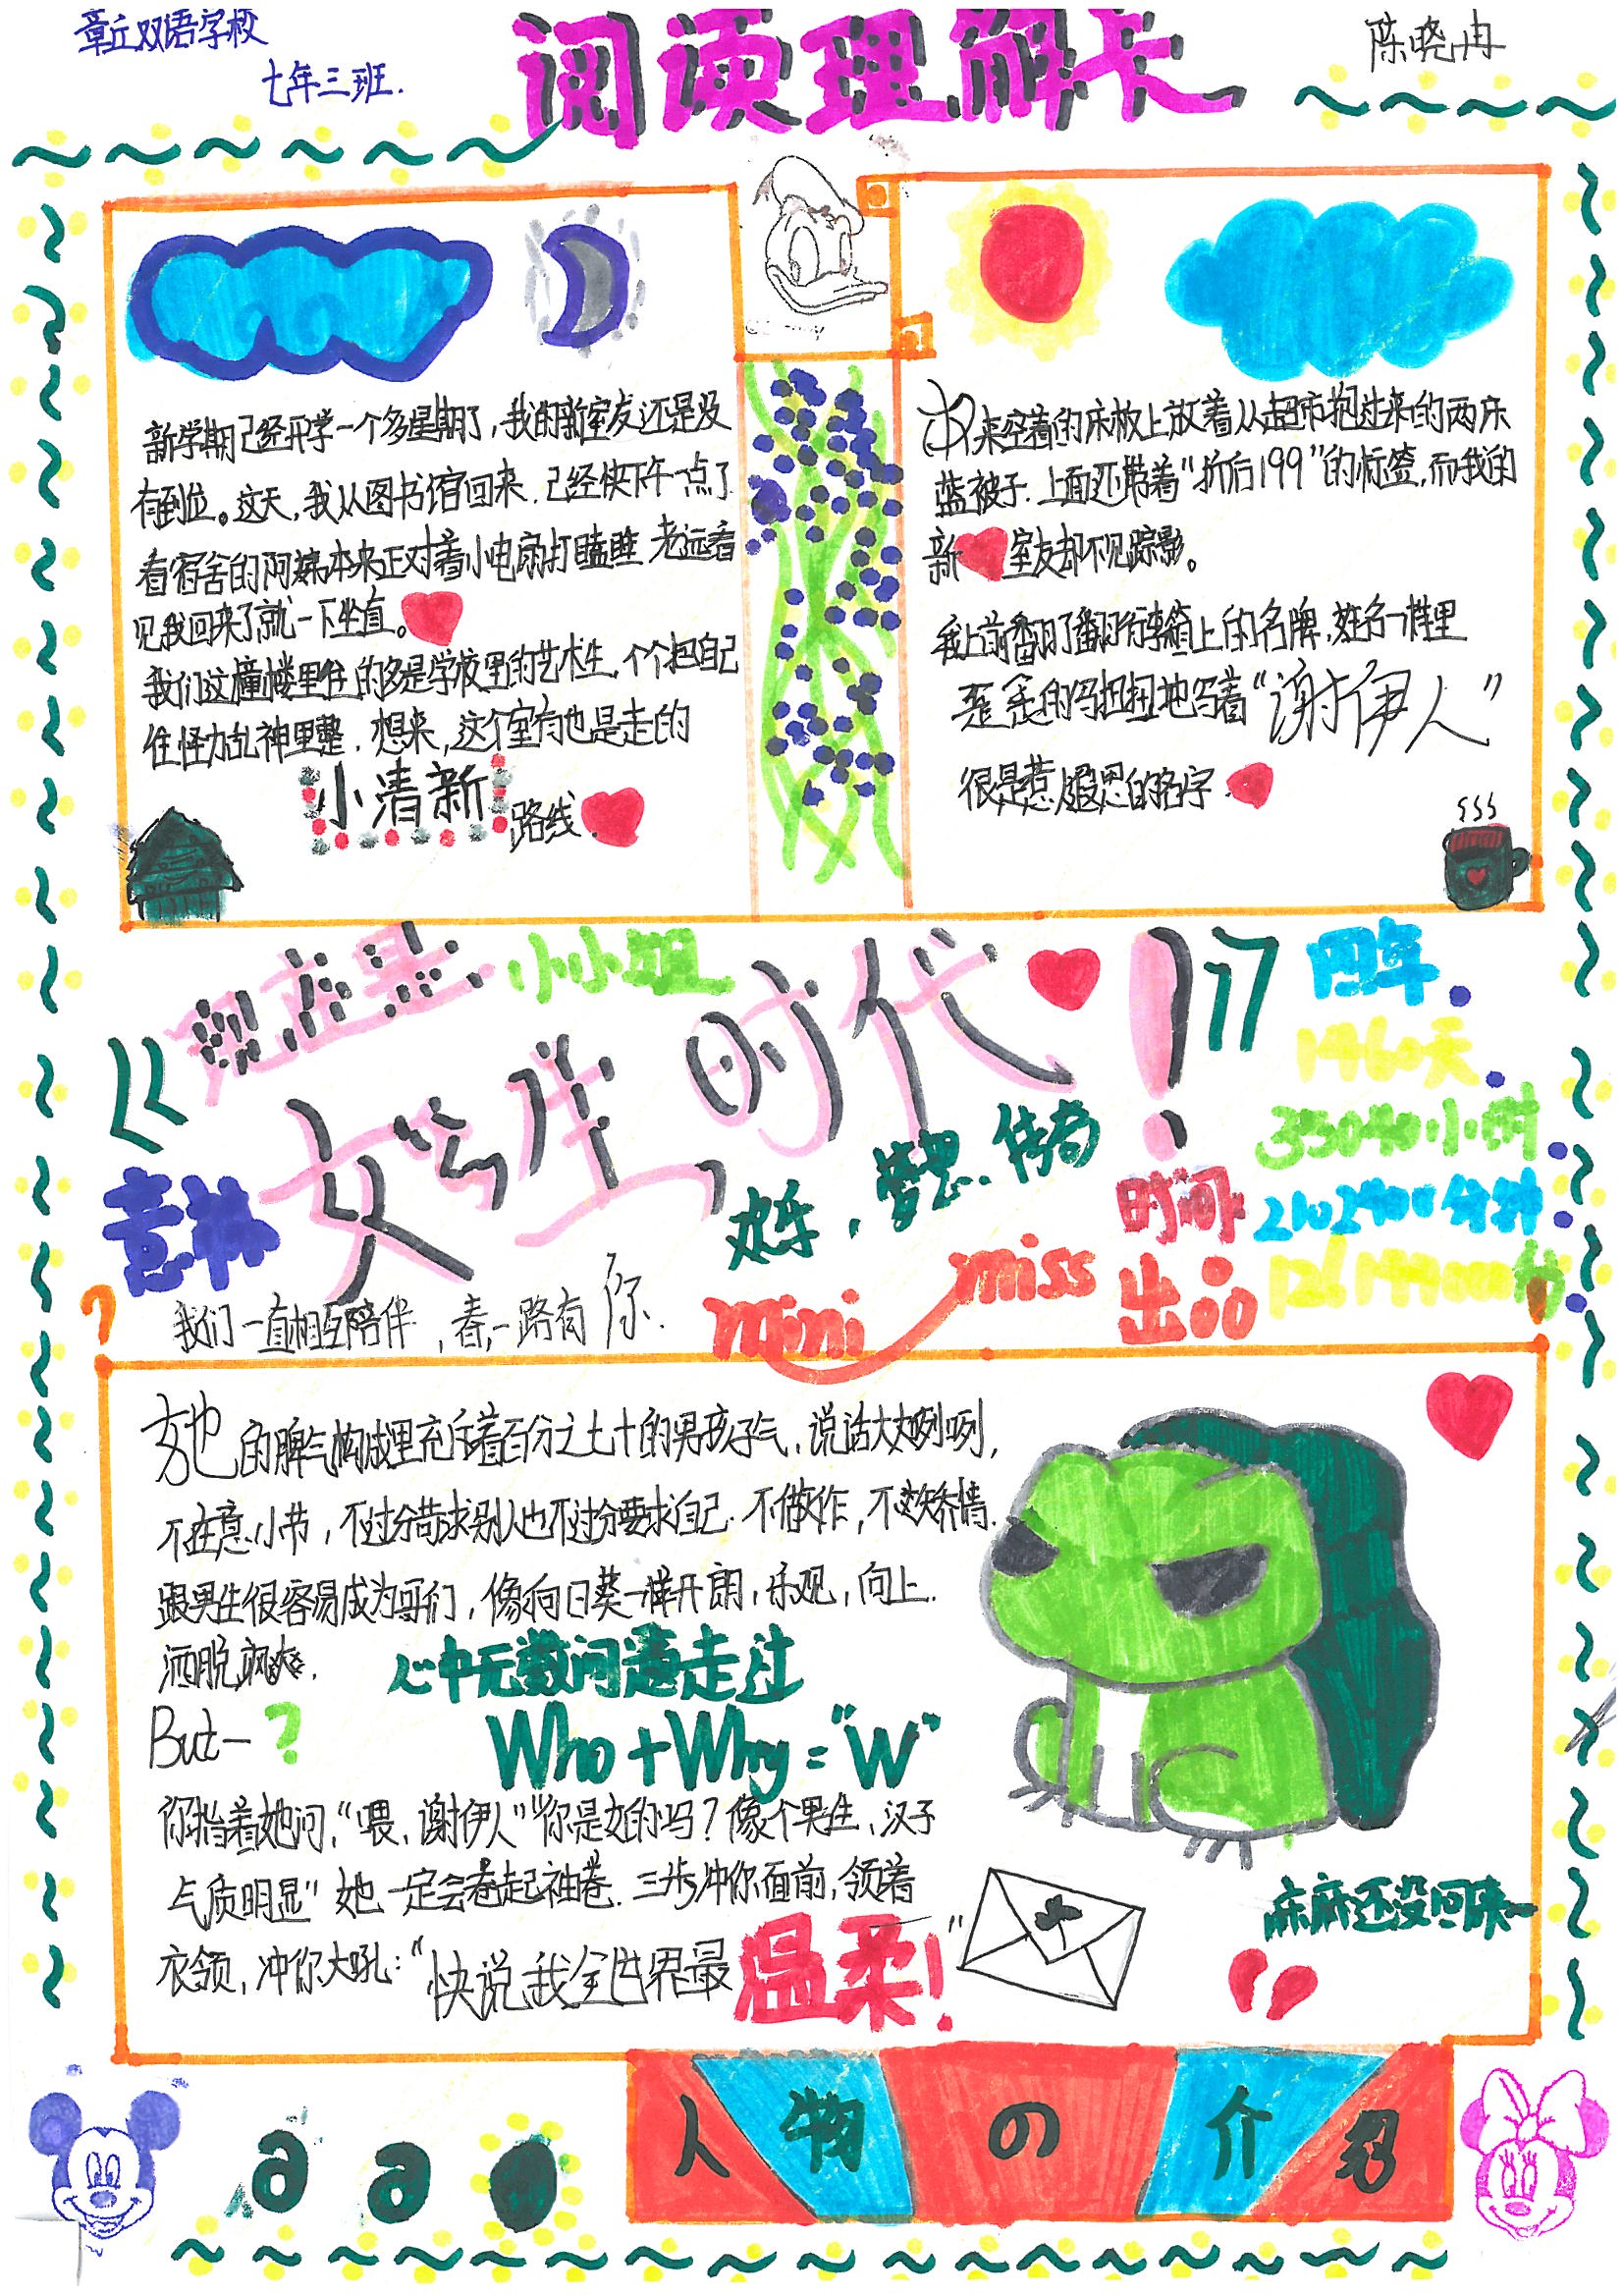 章丘双语学校
七年三班.
阅读理解卡
陈晓冉
新学期已经开学一个多星期了,我的新室友还是没
有到位。这天,我从图书馆回来.已经快下午一点了
看宿舍的阿姨本来正对着小电扇打瞌睡 老远看
见我回来了就一下坐直。
我们这幢楼里住的多是学校里的艺术生.个个把自己
住怪力乱神里整.想来,这个室有也是走的
小清新
路线.
来空着的床板上放着从超市抱过来的两床
蓝被子.上面还带着“折后199”的标签,而我的
新室友却不见踪影。
我上前翻了翻行李箱上的名牌,姓名一样里
歪歪的吗扭扭地写着“谢伊人”
很是惹人遐思的名字.
《现在是小小姐
女生时代!》
四年
1460天
35040小时
2102400分钟
126144000秒
意林
欢乐,梦想.传奇
时间
出品
mini miss
我们一直相互陪伴,春,一路有你.
她的脾气构成里充斥着百分之七十的男孩子气,说话大大咧咧,
不在意小节,不过分苛求别人也不过分要求自己.不做作,不矫情.
跟男生很容易成为哥们,像向日葵一样开朗,乐观,向上.
洒脱飒爽.
心中无数问题走过
But— ?
Who+Why="W"
你指着她问,“喂,谢伊人”“你是女的吗?像个男生,汉子
气质明显”她一定会卷起袖卷.三步冲你面前,领着
衣领,冲你大吼:“快说我全世界最温柔!”
麻麻还没回来~
人物の介绍